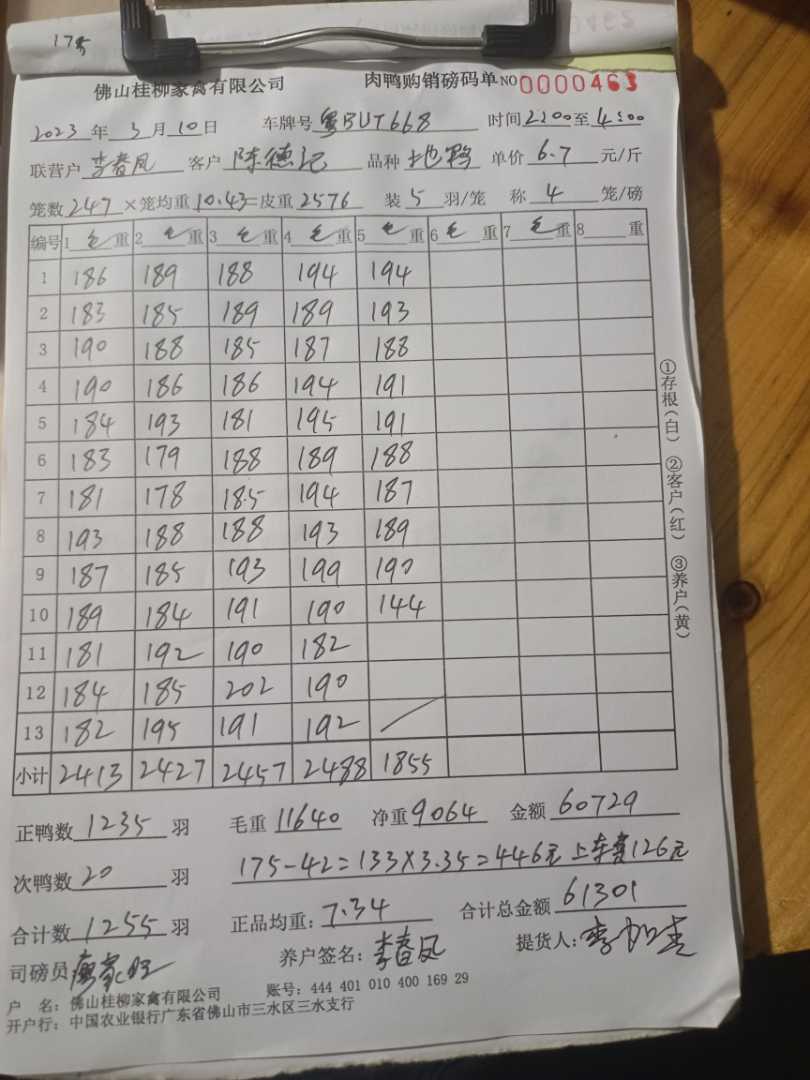 17号
佛山桂柳家禽有限公司 肉鸭购销磅码单 NO 0000463
2023 年 3 月 10 日 车牌号 粤BUT668 时间 2200 至 4:00
联营户 李春凤 客户 陈德记 品种 地鸭 单价 6.7 元/斤
笼数 247 ×笼均重 10.43 =皮重 2576 装 5 羽/笼 称 4 笼/磅
编号 1 毛 重 2 毛 重 3 毛 重 4 毛 重 5 毛 重 6 毛 重 7 毛 重 8 重
1 186 189 188 194 194
2 183 185 189 189 193
3 190 188 185 187 188
4 190 186 186 194 191
5 184 193 181 195 191
6 183 179 188 189 188
7 181 178 185 194 187
8 193 188 188 193 189
9 187 185 193 199 190
10 189 184 191 190 144
11 181 192 190 182
12 184 185 202 190
13 182 195 191 192
小计 2413 2427 2457 2488 1855
①存根(白) ②客户(红) ③养户(黄)
正鸭数 1235 羽 毛重 11640 净重 9064 金额 60729
次鸭数 20 羽 175-42=133×3.35=446元 上车费126元
合计数 1255 羽 正品均重: 7.34 合计总金额 61301
司磅员 养户签名: 李春凤 提货人:
户 名: 佛山桂柳家禽有限公司 账号: 444 401 010 400 169 29
开户行: 中国农业银行广东省佛山市三水区三水支行